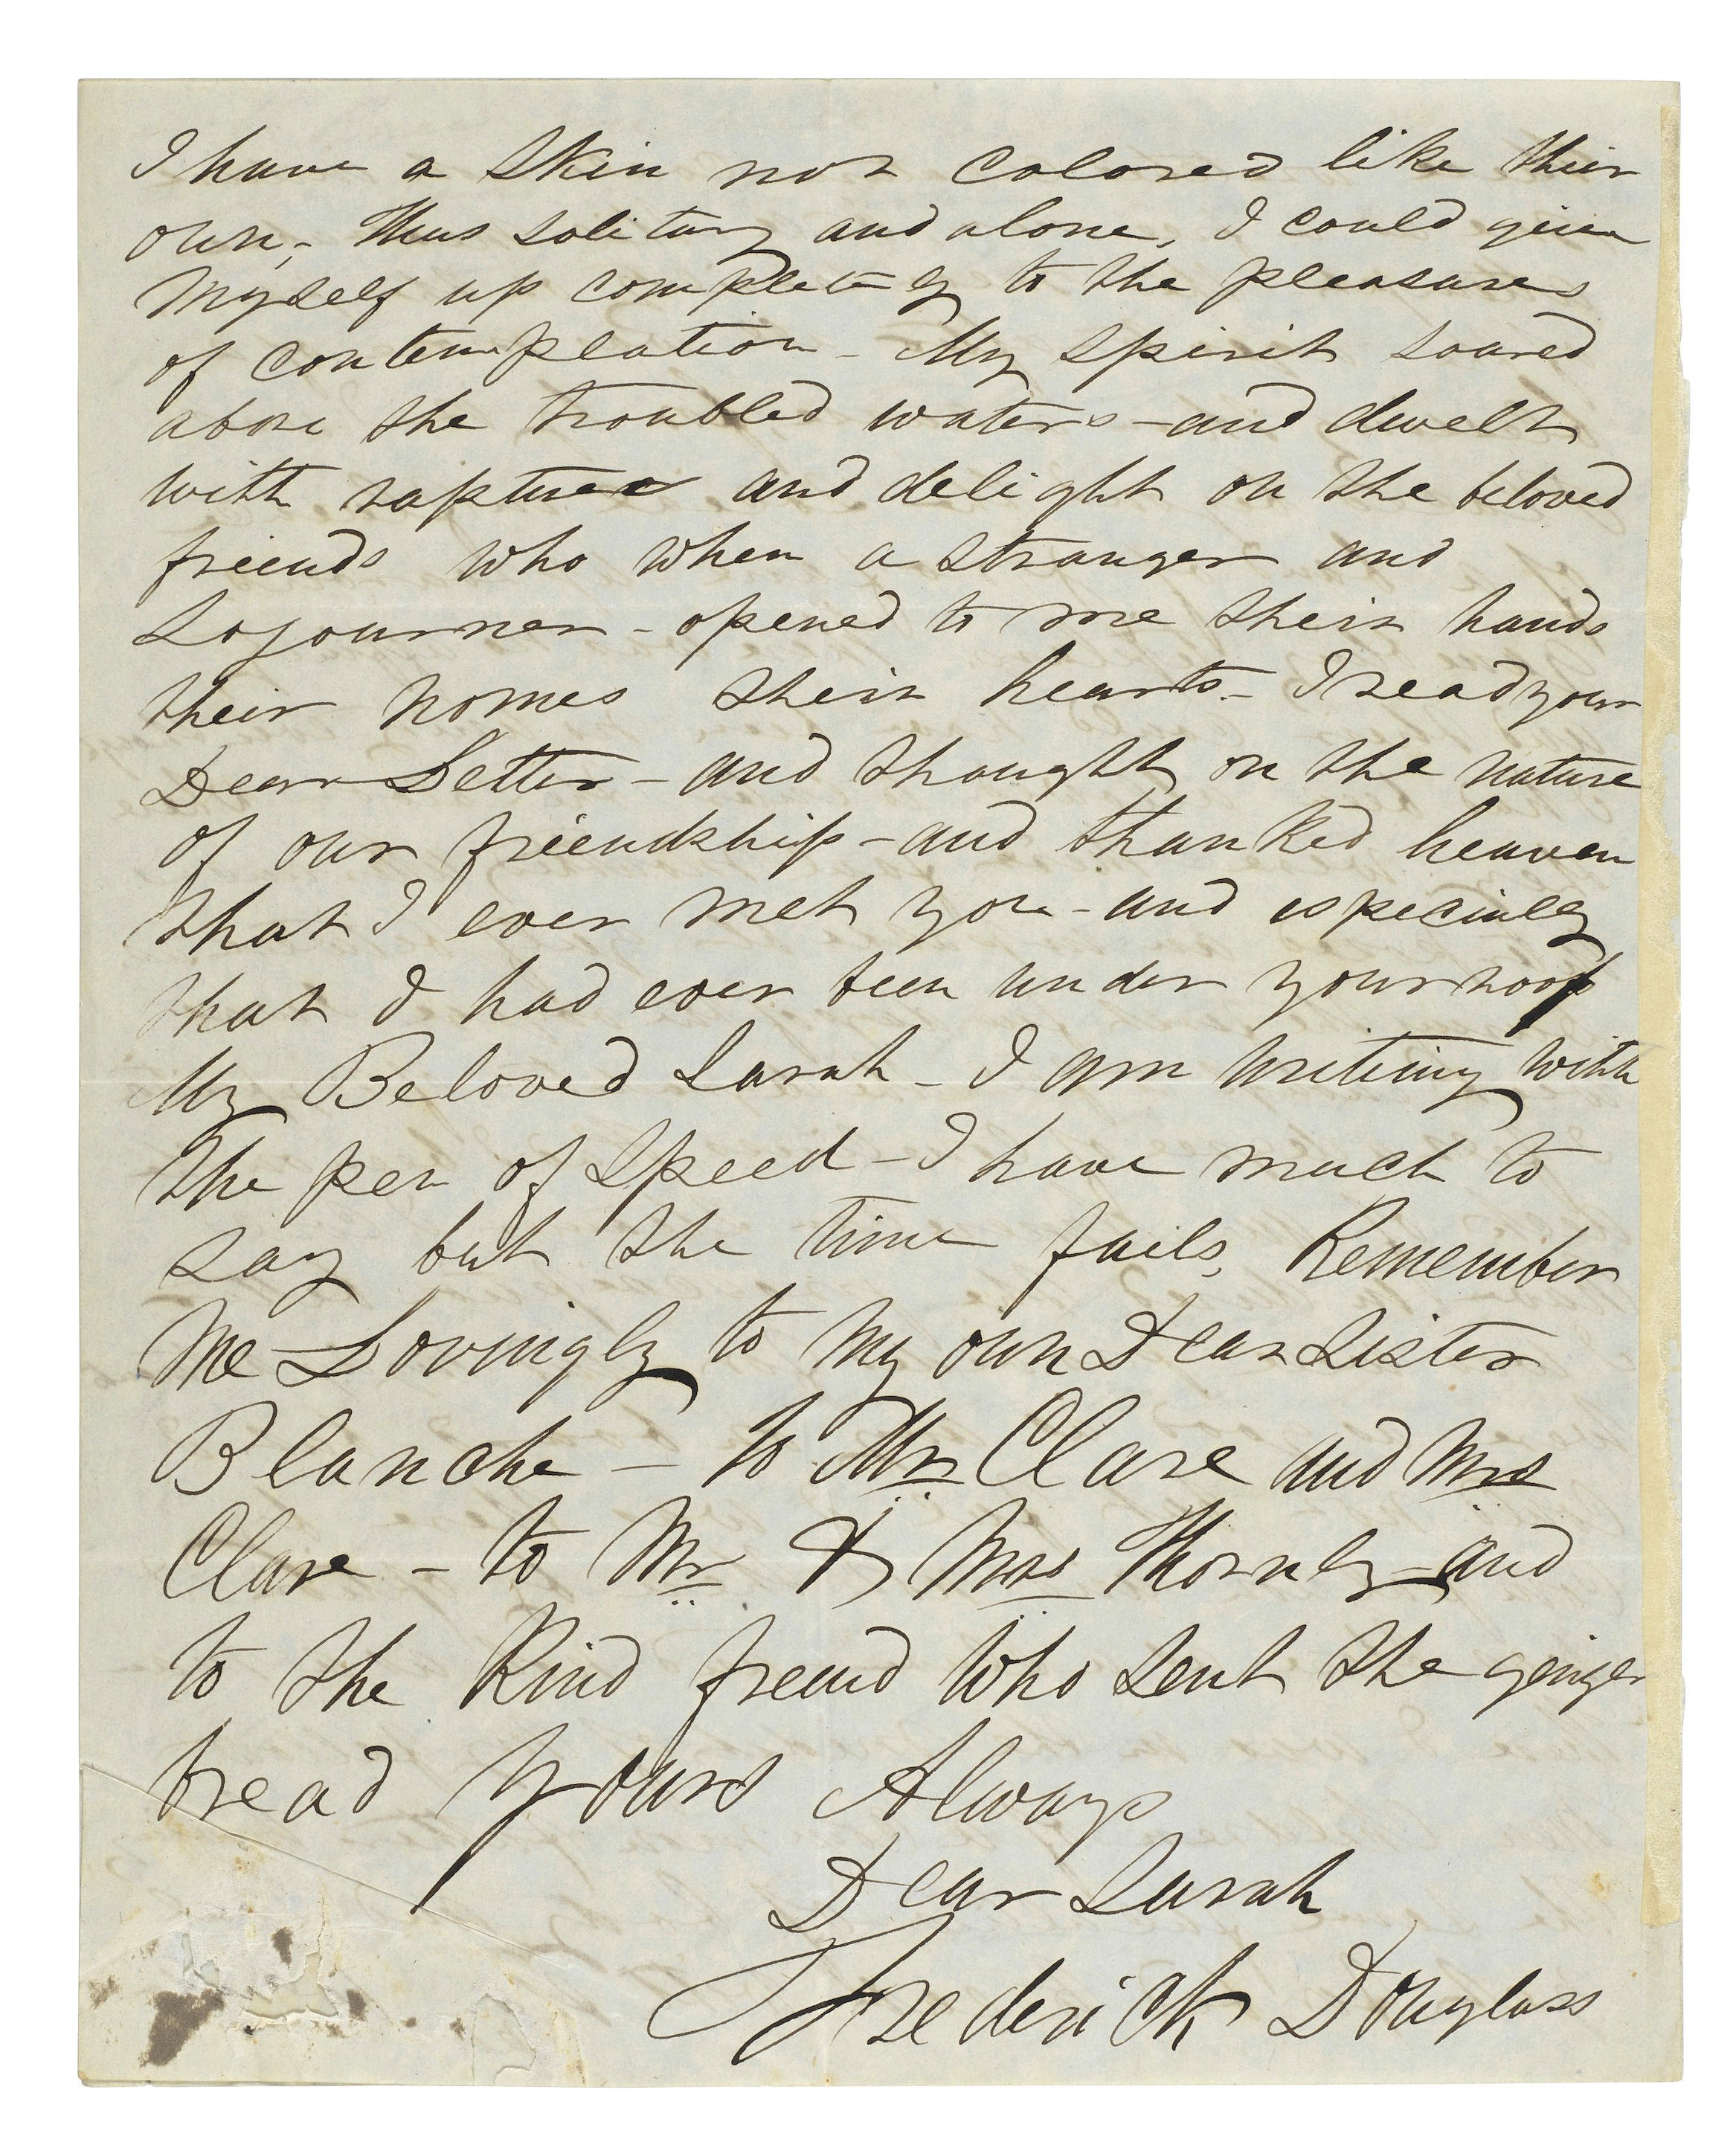 I have a skin not colored like their
own,- Thus solitary and alone, I could give
Myself up completely to the pleasures
of contemplation - My spirit soared
above the troubled waters - and dwelt
with rapture and delight on the beloved
friends who when a stranger and
Sojourner - opened to me their hands
their homes their hearts - I read your
Dear Letter - and thought on the nature
of our friendship - and thanked heaven
that I ever met you - and especially
that I had ever been under your roof
My Beloved Sarah - I am writing with
the pen of speed - I have much to
say but the time fails, Remember
Me Lovingly to My own Dear Sister
Blanche - to Mr Clare and Mrs
Clare - to Mr & Mrs Thornly - and
to the Kind freind who sent the ginger
bread Yours Always
Dear Sarah
Frederick Douglass